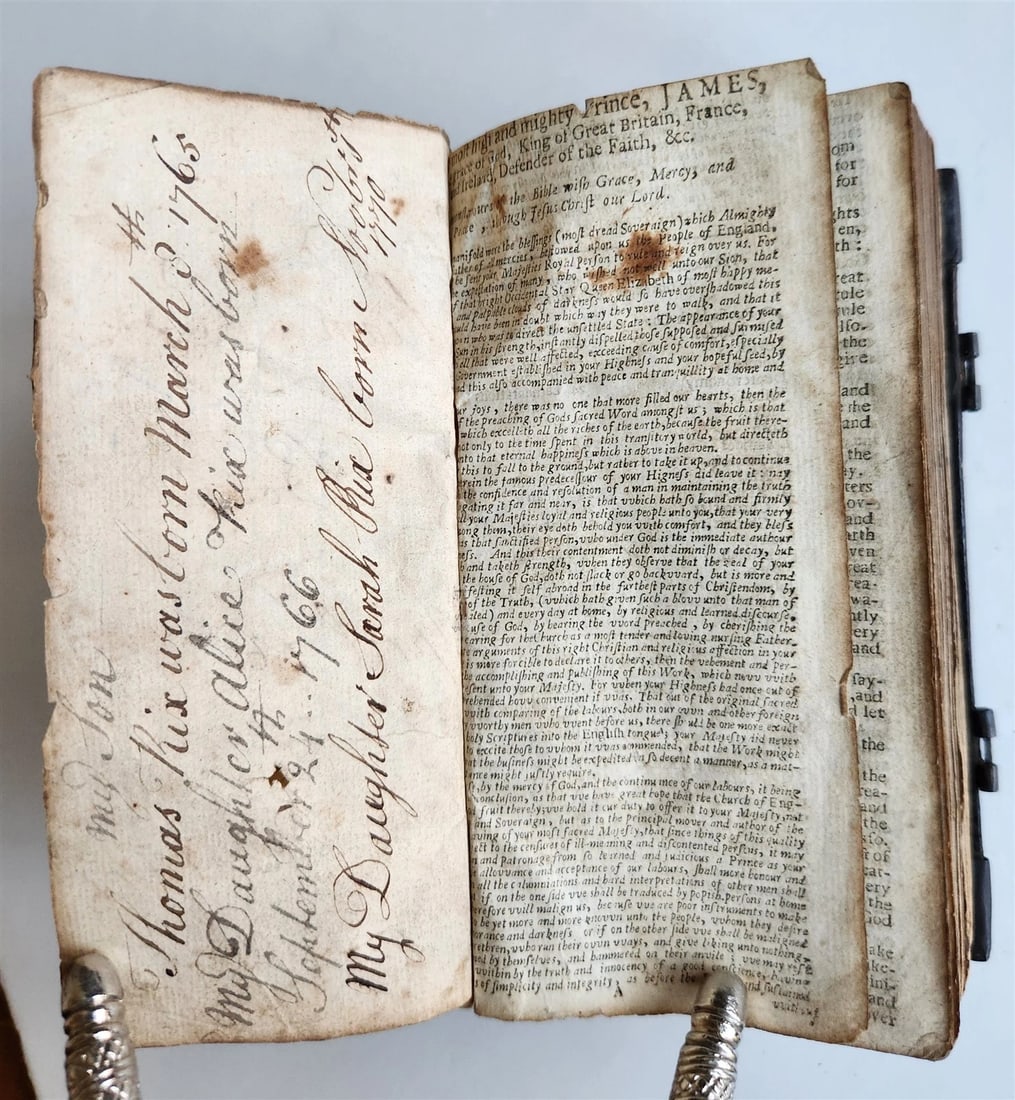 my Son
Thomas Rix was born March 8th 1765
My Daughter Alice Rix was born
September 24th 1766
My Daughter Sarah Rix born Nov
1770
high and mighty Prince, JAMES,
of God, King of Great Britain, France,
Ireland, Defender of the Faith, &c.
the Bible wish Grace, Mercy, and
through Jesus Christ our Lord.
were the blessings (most dread Soveraign) which Almighty
of mercies, bestowed upon us the People of England,
Majesties Royal Person to rule and reign over us. For
expectation of many, who wished not well unto our Sion, that
bright Occidental Star Queen Elizabeth of most happy me-
and palpable clouds of darkness would so have overshadowed this
have been in doubt which way they were to walk, and that it
who was to direct the unsettled State: The appearance of your
Sun in his strength, instantly dispelled those supposed and surmised
all that were well affected, exceeding cause of comfort, especially
government established in your Highness and your hopeful seed, by
this also accompanied with peace and tranquillity at home and
joys, there was no one that more filled our hearts, then the
the preaching of Gods sacred Word amongst us; which is that
which excelleth all the riches of the earth, because the fruit there-
only to the time spent in this transitory world, but directeth
that eternal happiness which is above in heaven.
this to fall to the ground, but rather to take it up, and to continue
the famous predecessour of your Highness did leave it: nay
the confidence and resolution of a man in maintaining the truth
it far and near, is that vvhich hath so bound and firmly
your Majesties loyal and religious people unto you, that your very
them, their eye doth behold you vvith comfort, and they bless
that sanctified person, vvho under God is the immediate authour
And this their contentment doth not diminish or decay, but
and taketh strength, vvhen they observe that the zeal of your
the house of God, doth not slack or go backvvard, but is more and
it self abroad in the furthest parts of Christendom, by
of the Truth, (vvhich hath given such a blovv unto that man of
and every day at home, by religious and learned discourse,
of God, by hearing the vvord preached, by cherishing the
caring for the Church as a most tender and loving nursing Father.
arguments of this right Christian and religious affection in your
is more forcible to declare it to others, then the vehement and per-
the accomplishing and publishing of this Work, which novv vvith
unto your Majesty. For vvhen your Highness had once out of
hovv convenient it vvas. That out of the original sacred
vvith comparing of the labours, both in our ovvn and other foreign
vvorthy men vvho vvent before us, there should be one more exact
holy Scriptures into the English tongue; your Majesty did never
to excite those to vvhom it vvas commended, that the Work might
the business might be expedited in so decent a manner, as a mat-
might justly require.
by the mercy of God, and the continuance of our labours, it being
conclusion, as that vve have great hope that the Church of Eng-
fruit thereby; vve hold it our duty to offer it to your Majesty, not
and Soveraign, but as to the principal mover and author of the
of your most sacred Majesty, that since things of this quality
to the censures of ill-meaning and discontented persons, it may
and patronage from so learned and judicious a Prince as your
allovvance and acceptance of our labours, shall more honour and
all the calumniations and hard interpretations of other men shall
if on the one side vve shall be traduced by popish persons at home
vvill malign us, because vve are poor instruments to make
be yet more and more knovvn unto the people, vvhom they desire
and darkness or if on the other side vve shall be maligned
vvho run their ovvn vvays, and give liking unto nothing,
by themselves, and hammered on their anvile; vve may rest
vvithin by the truth and innocency of a good conscience,
of simplicity and integrity, as before the and sustained
A
vvithout